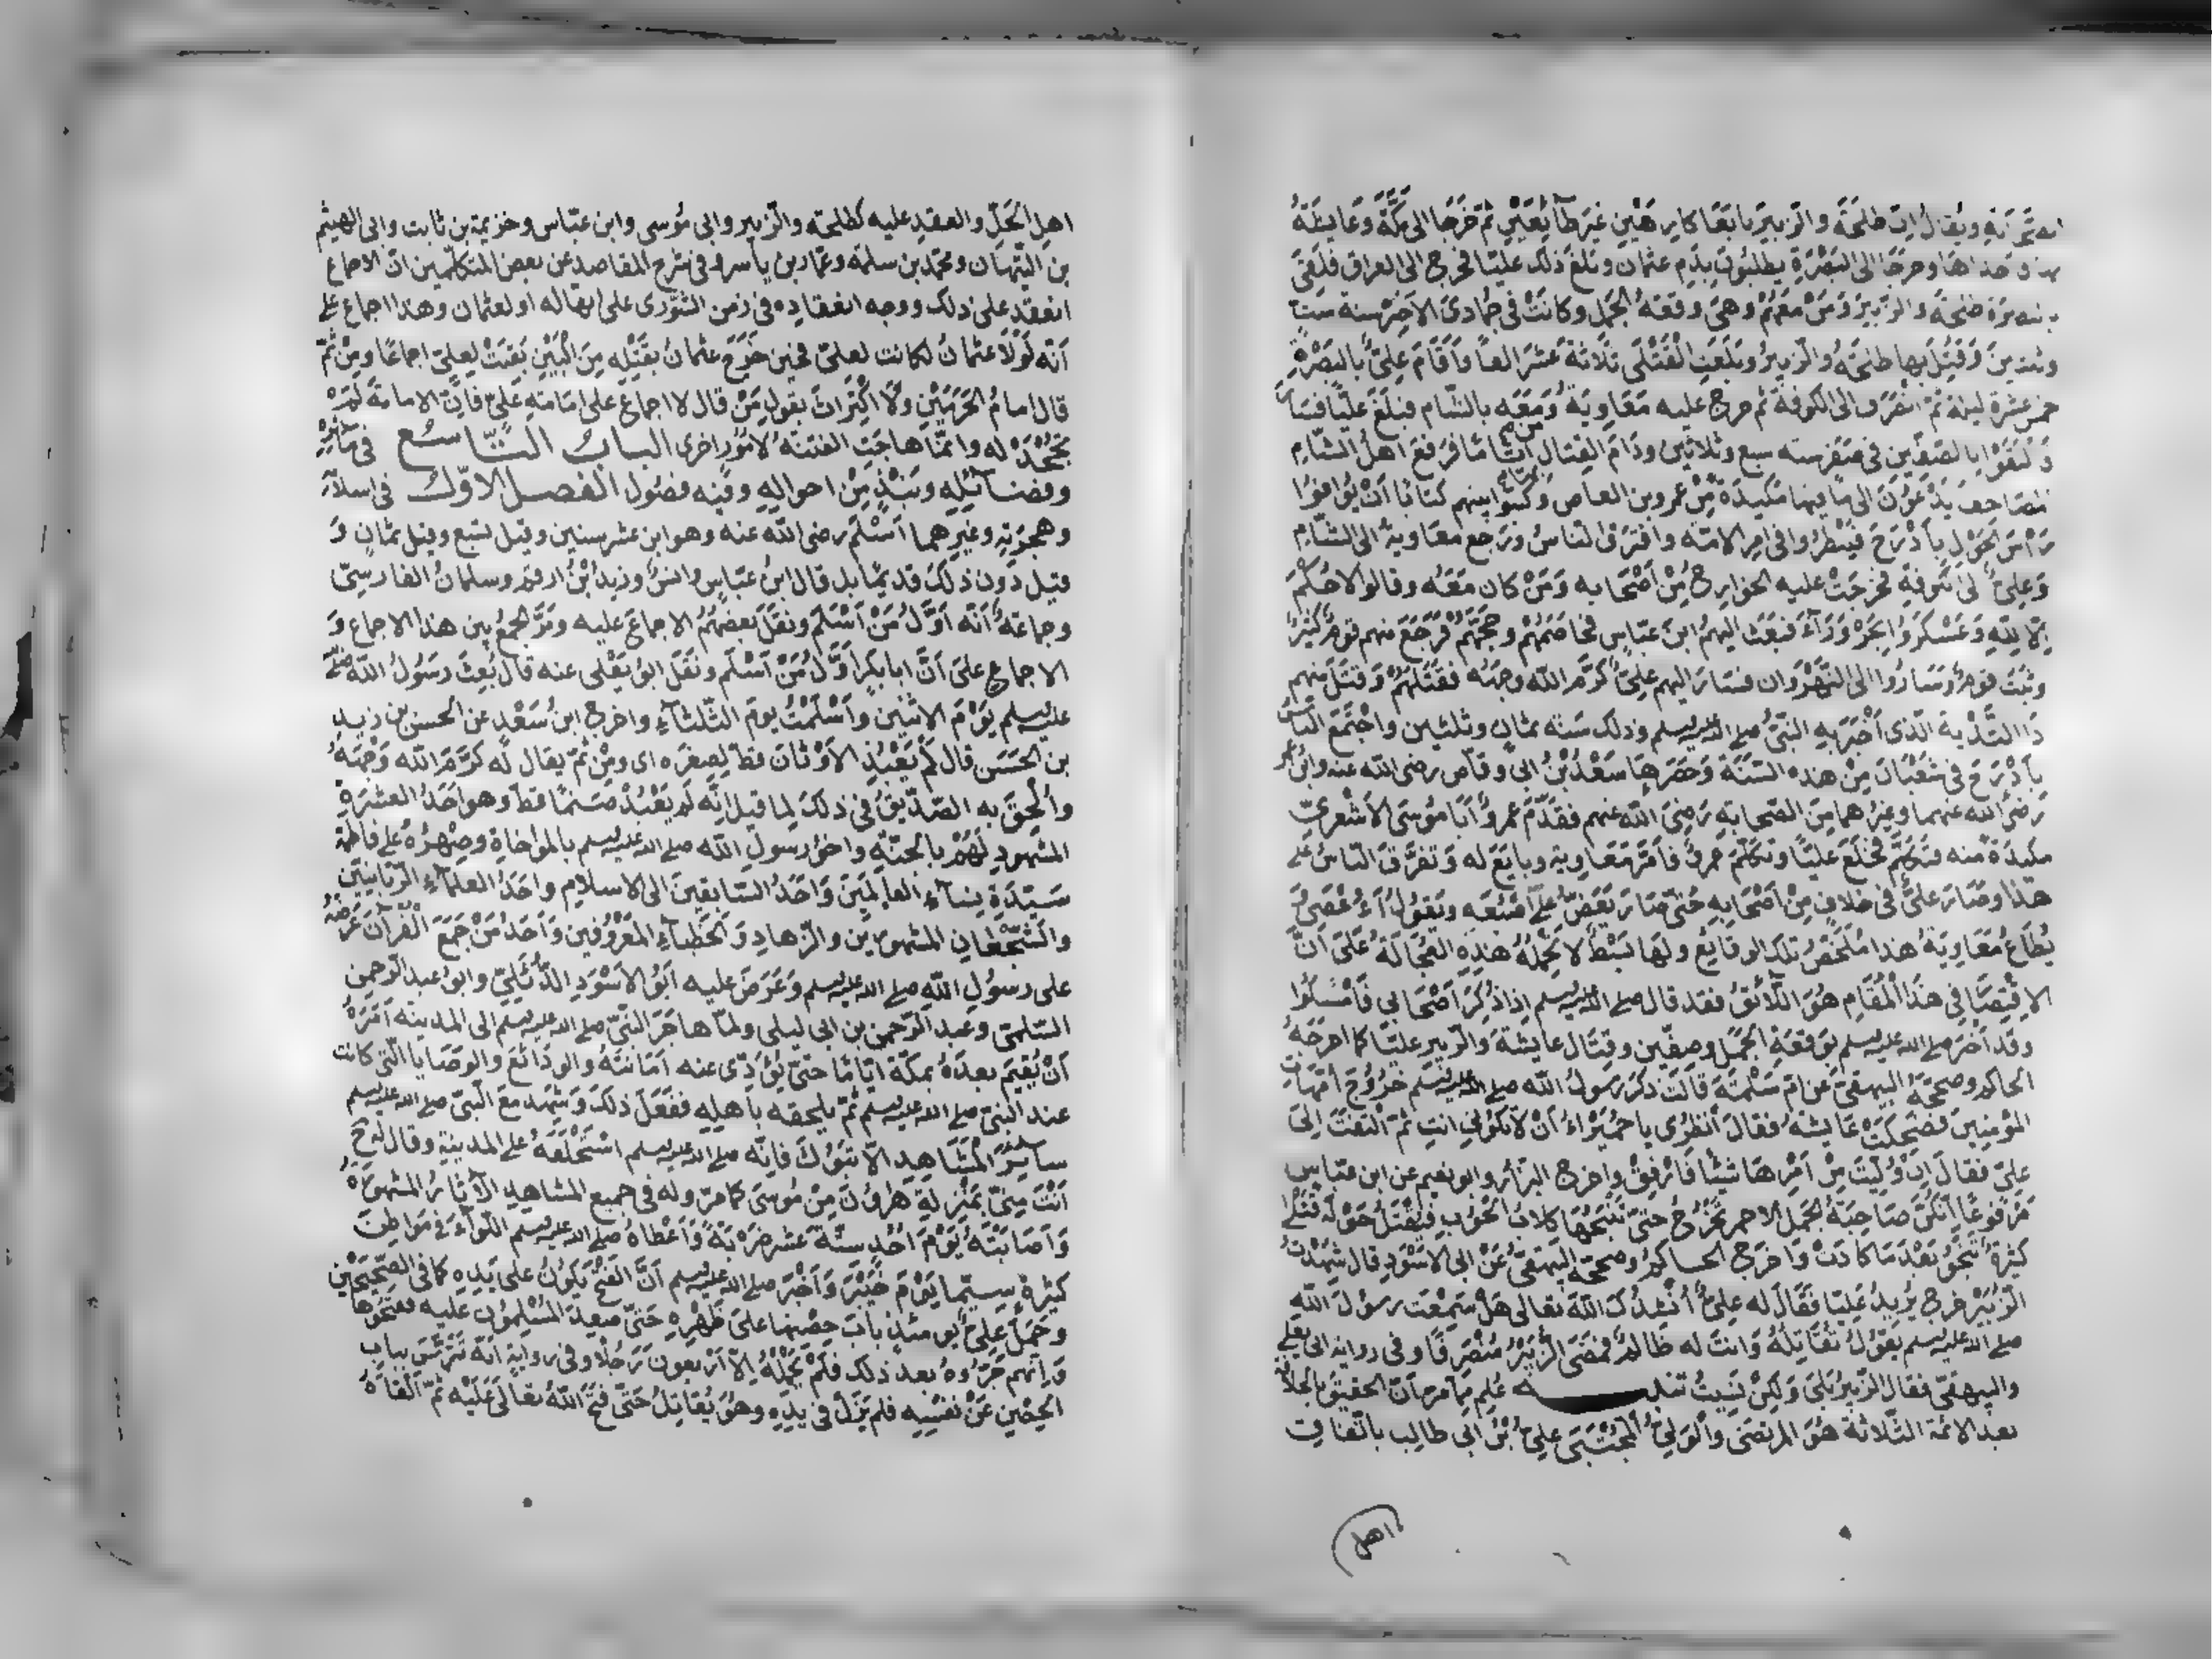 ويقال ان طلحة والزبير بايعا كارهين غير طائعين ثم خرجا الى مكة وعايشة
بها فاخذاها وخرجا الى البصرة يطلبون بدم عثمان وبلغ ذلك عليّا فخرج الى العراق فلقى
بالبصرة طلحة والزبير ومن معهم وهى وقعة الجمل وكانت فى جمادى الاخر سنة ست
وثلاثين وقتل بها طلحة والزبير وبلغت القتلى ثلاثة عشر الفا واقام علىّ بالبصرة
خمس عشرة ليلة ثم انصرف الى الكوفة ثم خرج عليه معاوية ومن معه بالشام فبلغ عليّا فسار
فالتقوا بالصفين فى صفر سنه سبع وثلاثين ودام القتال اياما فرفع اهل الشام
المصاحف يدعون الى ما فيها مكيدة من عمرو بن العاص وكتبوا بينهم كتابا ان يوافوا
راس الحول باذرح فينظروا فى امر الامة وافترق الناس ورجع معاوية الى الشام
وعلىّ الى الكوفة فخرجت عليه الخوارج من اصحابه ومن كان معه وقالوا لا حكم
الا لله وعسكروا بحروراء فبعث اليهم ابن عباس فخاصمهم وحجهم فرجع منهم قوم كثير
وثبت قوم وساروا الى النهروان فسار اليهم علىّ كرم الله وجهه فقتلهم وقتل منهم
ذا الثدية الذى اخبر به النبىّ صلى الله عليه وسلم وذلك سنه ثمان وثلثين واجتمع الناس
باذرح فى شعبان من هذه السنة وحضرها سعد بن ابى وقاص رضى الله عنه وابن عمر
رضى الله عنهما وغيرهما من الصحابة رضى الله عنهم فقدّم عمرو ابا موسى الاشعرىّ
مكيدة منه فتكلم فخلع عليّا وتكلم عمرو فاقر معاوية وبايع له وتفرق الناس على
هذا وصار علىّ فى خلاف من اصحابه حتى صار يعض على اصبعه ويقول اءُعصى و
يطاع معاوية هذا ملخص تلك الوقايع ولها بسط لا تحمله هذه العجالة على انّ
الاقتصار فى هذا المقام هو اللائق فقد قال صلى الله عليه وسلم اذا ذكر اصحابى فامسكوا
وقد اخبر صلى الله عليه وسلم بوقعة الجمل وصفين وقتال عايشة والزبير عليّا كما اخرجه
الحاكم وصححه البيهقى عن ام سلمة قالت ذكر رسول الله صلى الله عليه وسلم خروج امهات
المؤمنين فضحكت عايشة فقال انظرى يا حميراء ان لا تكونى انت ثم التفت الى
علىّ فقال ان وُلّيت من امرها شيئا فارفق واخرج البزار وابو نعيم عن ابن عباس
مرفوعا ايتكنّ صاحبة الجمل الاحمر تخرج حتى تنبحها كلاب الحوب فيقتل حوله قتلى
كثيرة تنجو بعد ما كادت واخرج الحاكم وصححه البيهقى عن ابى الاسود قال شهدت
الزبير خرج يريد عليّا فقال له علىّ انشدك الله تعالى هل سمعت رسول الله
صلى الله عليه وسلم يقول تقاتله وانت له ظالم فمضى الزبير منصرفا وفى رواية ابى يعلى
والبيهقىّ فقال الزبير بلى ولكن نسيت تنبيه عُلم مما مرّ ان الحقيق بالخلافة
بعد الائمة الثلاثة هو المرتضى والولىّ المجتبى علىّ بن ابى طالب باتفاق
اهل
اهل الحلّ والعقد عليه كطلحة والزبير وابى موسى وابن عبّاس وخزيمة بن ثابت وابى الهيثم
بن التّيهان ومحمد بن سلمة وعمّار بن ياسر وفى شرح المقاصد عن بعض المتكلّمين انّ الاجماع
انعقد على ذلك ووجه انعقاده فى زمن الشّورى على انها له او لعثمان وهذا اجماع على
انّه لولا عثمان لكانت لعلىّ فحين خرج عثمان بقتله من البين بقيت لعلىّ اجماعا ومن ثمّ
قال امام الحرمين ولا اكتراث بقول من قال لا اجماع على امامة علىّ فانّ الامامة لم
تجحد له وانّما هاجت الفتنة لامور اخرى الباب التاسع فى مآثره
وفضائله ونبذ من احواله وفيه فصول الفصل الاوّل فى اسلامه
وهجرته وغيرهما اسلم رضى الله عنه وهو ابن عشر سنين وقيل تسع وقيل ثمان و
قيل دون ذلك قديما بل قال ابن عبّاس وانس وزيد بن ارقم وسلمان الفارسىّ
وجماعة انّه اوّل من اسلم ونقل بعضهم الاجماع عليه ومرّ الجمع بين هذا الاجماع و
الاجماع على انّ ابا بكر اوّل من اسلم ونقل ابو يعلى عنه قال بعث رسول الله صلى الله
عليه وسلم يوم الاثنين واسلمت يوم الثلثاء واخرج ابن سعد عن الحسن بن زيد
بن الحسن قال لم يعبد الاوثان قط لصغره اى ومن ثمّ يقال له كرّم الله وجهه
والحق به الصدّيق فى ذلك لما قيل انّه لم يعبد صنما قط وهو احد العشرة
المشهود لهم بالجنّة واخو رسول الله صلى الله عليه وسلم بالمواخاة وصهره على فاطمة
سيّدة نساء العالمين واحد السابقين الى الاسلام واحد العلماء الربّانيّين
والشّجعان المشهورين والزّهاد والخطباء المعروفين واحد من جمع القرآن عرضه
على رسول الله صلى الله عليه وسلم وعرض عليه ابو الاسود الدّئلىّ وابو عبد الرحمن
السّلمىّ وعبد الرحمن بن ابى ليلى ولمّا هاجر النبىّ صلى الله عليه وسلم الى المدينة امره
ان يقيم بعده بمكّة ايّاما حتى يؤدّى عنه امانته والودائع والوصايا التى كانت
عند النبىّ صلى الله عليه وسلم ثمّ يلحقه باهله ففعل ذلك وشهد مع النبىّ صلى الله عليه وسلم
سائر المشاهد الا تبوك فانّه صلى الله عليه وسلم استخلفه على المدينة وقال له ح
انت منّى بمنزلة هارون من موسى كما مرّ وله فى جميع المشاهد الآثار المشهورة
واصابته يوم احد ستّة عشر ضربة واعطاه صلى الله عليه وسلم اللواء فى مواطن
كثيرة سيّما يوم خيبر واخبر صلى الله عليه وسلم انّ الفتح يكون على يده كما فى الصحيحين
وحمل علىّ يومئذ باب حصنها على ظهره حتى صعد المسلمون عليه ففتحوها
وانهم جرّوه بعد ذلك فلم يحمله الا اربعون رجلا وفى رواية انّه تترّس بباب
الحصين عن نفسه فلم يزل فى يده وهو يقاتل حتى فتح الله تعالى عليه ثمّ القاه